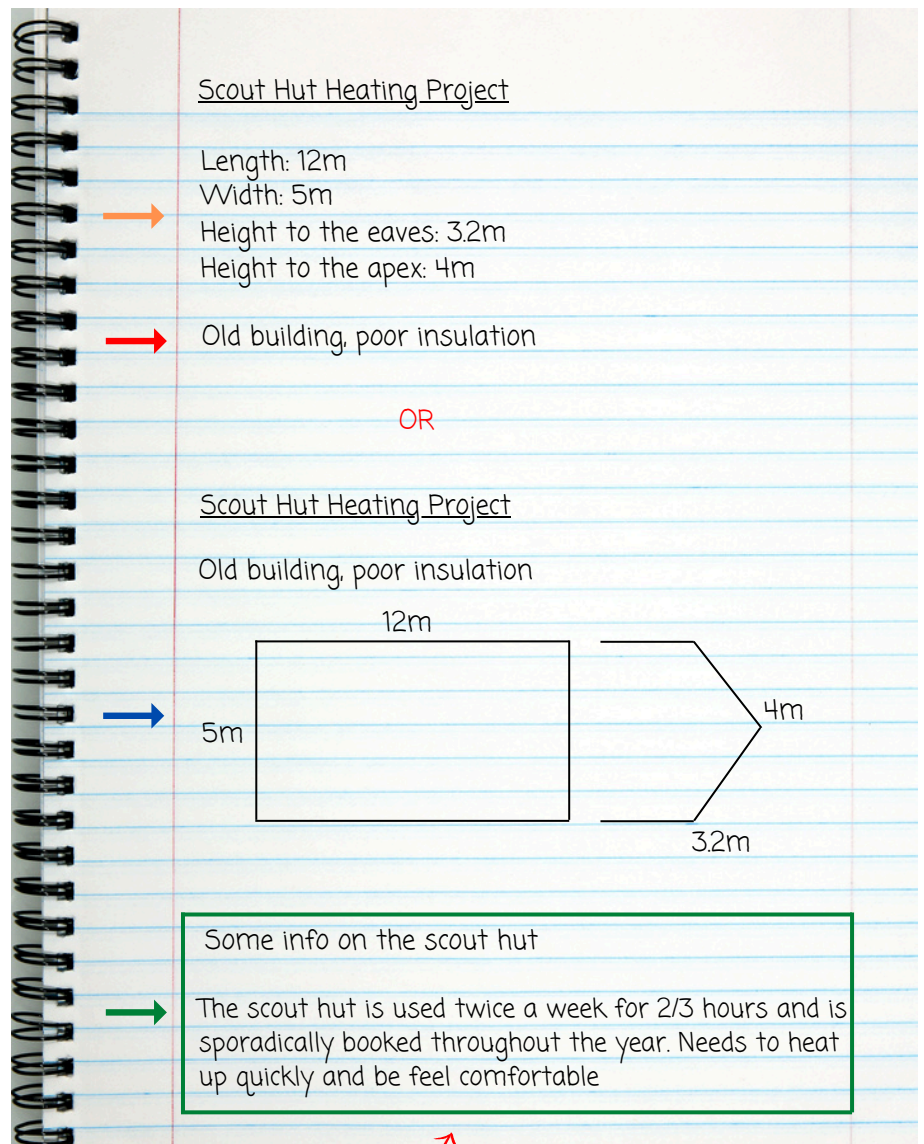 Scout Hut Heating Project
Length: 12m
Width: 5m
Height to the eaves: 3.2m
Height to the apex: 4m
Old building, poor insulation
OR
Scout Hut Heating Project
Old building, poor insulation
12m
5m
4m
3.2m
Some info on the scout hut
The scout hut is used twice a week for 2/3 hours and is
sporadically booked throughout the year. Needs to heat
up quickly and be feel comfortable